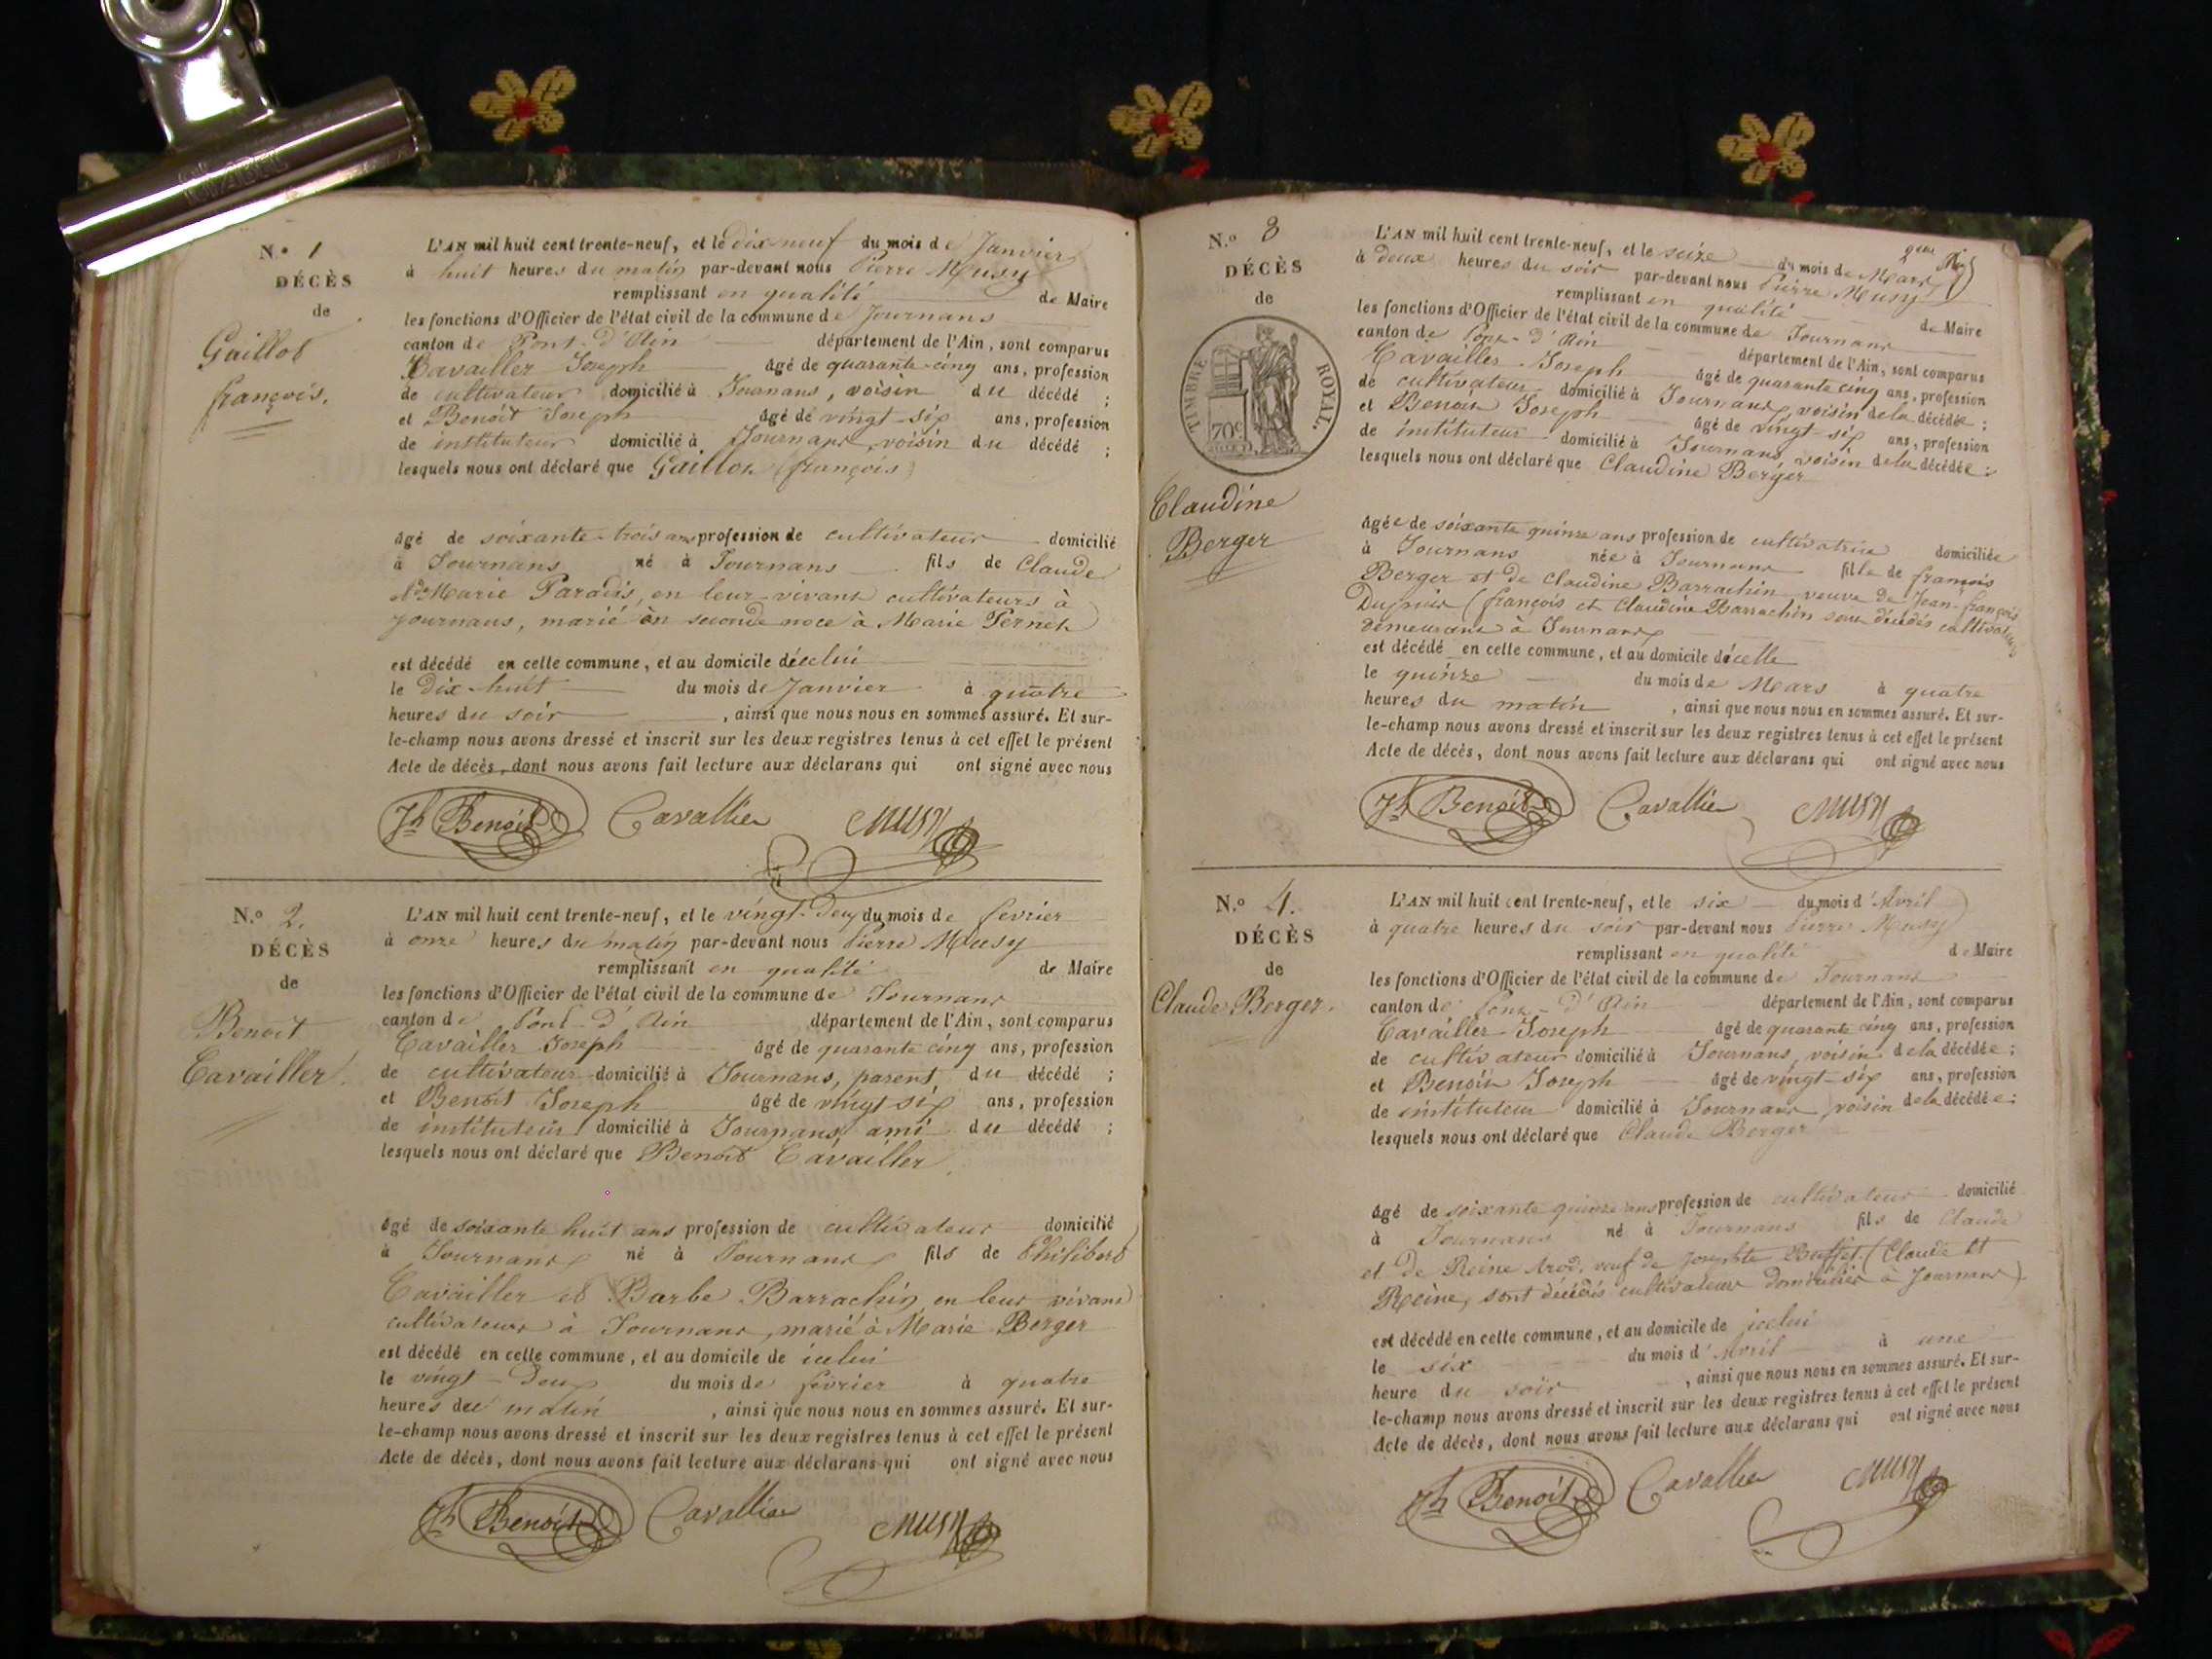 N.º 1
DÉCÈS
de
Gaillot
françois.
L'AN mil huit cent trente-neuf, et le dix-neuf du mois de Janvier
à huit heures du matin par-devant nous Pierre Musy
remplissant en qualité de Maire
les fonctions d'Officier de l'état civil de la commune de Journans
canton de Pont-d'Ain département de l'Ain, sont comparus
Cavailler Joseph âgé de quarante-cinq ans, profession
de cultivateur domicilié à Journans, voisin du décédé ;
et Benoit Joseph âgé de vingt-six ans, profession
de instituteur domicilié à Journans, voisin du décédé ;
lesquels nous ont déclaré que Gaillot (françois)
âgé de soixante-trois ans profession de cultivateur domicilié
à Journans né à Journans fils de Claude
Marie Paradis, en leur vivant cultivateurs à
journans, marié en seconde noce à Marie Pernet
est décédé en cette commune, et au domicile d'icelui
le dix-huit du mois de Janvier à quatre
heures du soir , ainsi que nous nous en sommes assuré. Et sur-
le-champ nous avons dressé et inscrit sur les deux registres tenus à cet effet le présent
Acte de décès, dont nous avons fait lecture aux déclarans qui ont signé avec nous
Jh Benoit Cavallier Musy
N.º 2.
DÉCÈS
de
Benoit
Cavailler.
L'AN mil huit cent trente-neuf, et le vingt-deux du mois de fevrier
à onze heures du matin par-devant nous Pierre Musy
remplissant en qualité de Maire
les fonctions d'Officier de l'état civil de la commune de Journans
canton de Pont-d'Ain département de l'Ain, sont comparus
Cavailler Joseph âgé de quarante cinq ans, profession
de cultivateur domicilié à Journans, parent du décédé ;
et Benoit Joseph âgé de vingt six ans, profession
de instituteur domicilié à Journans ami du décédé ;
lesquels nous ont déclaré que Benoit Cavailler
âgé de soixante huit ans profession de cultivateur domicilié
à Journans né à Journans fils de Philibert
Cavailler et Barbe Barrachin en leur vivant
cultivateurs à Journans, marié à Marie Berger
est décédé en cette commune, et au domicile de icelui
le vingt-deux du mois de février à quatre
heures du matin , ainsi que nous nous en sommes assuré. Et sur-
le-champ nous avons dressé et inscrit sur les deux registres tenus à cet effet le présent
Acte de décès, dont nous avons fait lecture aux déclarans qui ont signé avec nous
Jh Benoit Cavallier Musy
N.º 3
DÉCÈS
de
TIMBRE ROYAL.
70c
Claudine
Berger
L'AN mil huit cent trente-neuf, et le seize du mois de Mars
à deux heures du soir par-devant nous Pierre Musy
remplissant en qualité de Maire
les fonctions d'Officier de l'état civil de la commune de Journans
canton de Pont-d'Ain département de l'Ain, sont comparus
Cavailler Joseph âgé de quarante cinq ans, profession
de cultivateur domicilié à Journans, voisin de la décédée ;
et Benoit Joseph âgé de vingt-six ans, profession
de instituteur domicilié à Journans, voisin de la décédée ;
lesquels nous ont déclaré que Claudine Berger
âgée de soixante quinze ans profession de cultivatrice domiciliée
à Journans née à Journans fille de françois
Berger et de Claudine Barrachin veuve de Jean-françois
(françois et Claudine Barrachin sont décédés cultivateurs
demeurant à Journans
est décédé en cette commune, et au domicile d'icelle
le quinze du mois de Mars à quatre
heures du matin , ainsi que nous nous en sommes assuré. Et sur-
le-champ nous avons dressé et inscrit sur les deux registres tenus à cet effet le présent
Acte de décès, dont nous avons fait lecture aux déclarans qui ont signé avec nous
Jh Benoit Cavallier Musy
N.º 4.
DÉCÈS
de
Claude Berger.
L'AN mil huit cent trente-neuf, et le six du mois d'Avril
à quatre heures du soir par-devant nous Pierre Musy
remplissant en qualité de Maire
les fonctions d'Officier de l'état civil de la commune de Journans
canton de Pont-d'Ain département de l'Ain, sont comparus
Cavailler Joseph âgé de quarante cinq ans, profession
de cultivateur domicilié à Journans, voisin de la décédée ;
et Benoit Joseph âgé de vingt-six ans, profession
de instituteur domicilié à Journans voisin de la décédée ;
lesquels nous ont déclaré que Claude Berger
âgé de soixante quinze ans profession de cultivateur domicilié
à Journans né à Journans fils de Claude
et de Reine veuf de Buffet. (Claude et
Reine, sont décédés cultivateurs domiciliés à Journans)
est décédé en cette commune, et au domicile de icelui
le six du mois d'Avril à une
heure du soir , ainsi que nous nous en sommes assuré. Et sur-
le-champ nous avons dressé et inscrit sur les deux registres tenus à cet effet le présent
Acte de décès, dont nous avons fait lecture aux déclarans qui ont signé avec nous
Jh Benoit Cavallier Musy